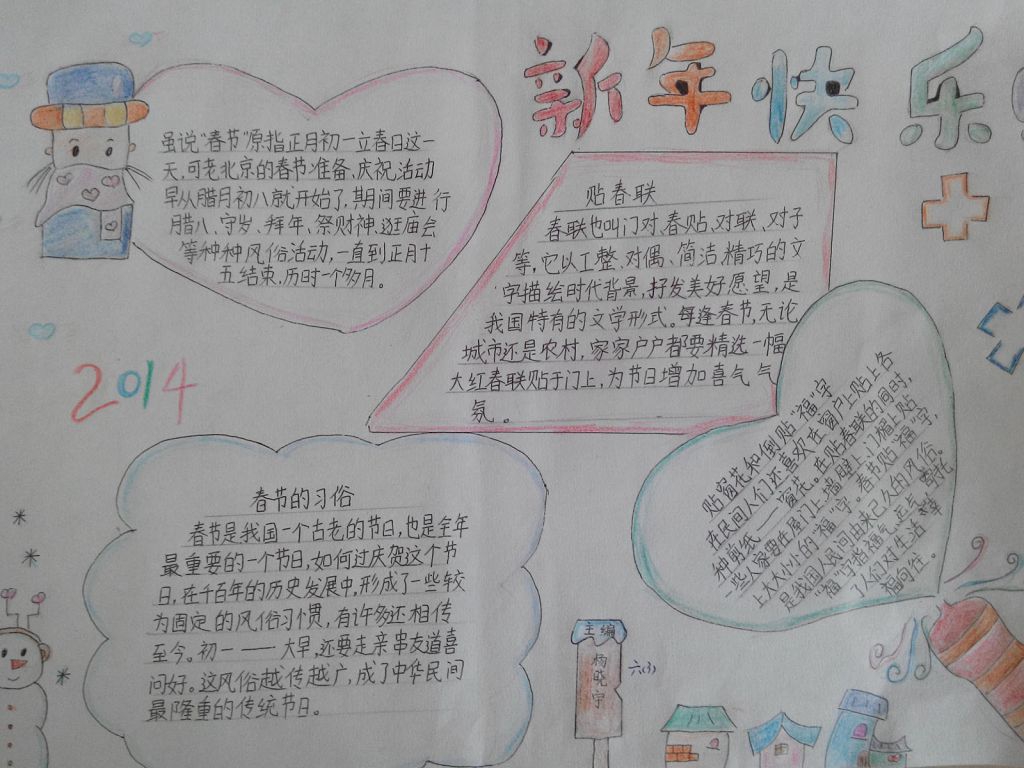 新年快乐
虽说“春节”原指正月初一立春日这一
天,可老北京的春节准备、庆祝活动
早从腊月初八就开始了,其期间要进行
腊八、守岁、拜年、祭财神、逛庙会
等种种风俗活动,一直到正月十
五结束,历时一个多月。
贴春联
春联也叫门对、春贴、对联、对子
等,它以工整、对偶、简洁、精巧的文
字描绘时代背景,抒发美好愿望,是
我国特有的文学形式。每逢春节,无论
城市还是农村,家家户户都要精选一幅
大红春联贴于门上,为节日增加喜气气
氛。
2014
贴窗花和倒贴“福”字
在民间人们还喜欢在窗户上贴上各
种剪纸——窗花。在贴春联的同时,
一些人家要在屋门上、墙壁上、门楣上贴
上大大小小的“福”字。春节贴“福”字,
是我国人民间由来已久的风俗。
“福”字指福气、运气,寄托
了人们对生活幸
福向往。
春节的习俗
春节是我国一个古老的节日,也是全年
最重要的一个节日,如何过庆贺这个节
日,在千百年的历史发展中,形成了一些较
为固定的风俗习惯,有许多还相传
至今。初一——大早,还要走亲串友道喜
问好。这风俗越传越广,成了中华民间
最隆重的传统节日。
主编
杨晓宇
六(3)